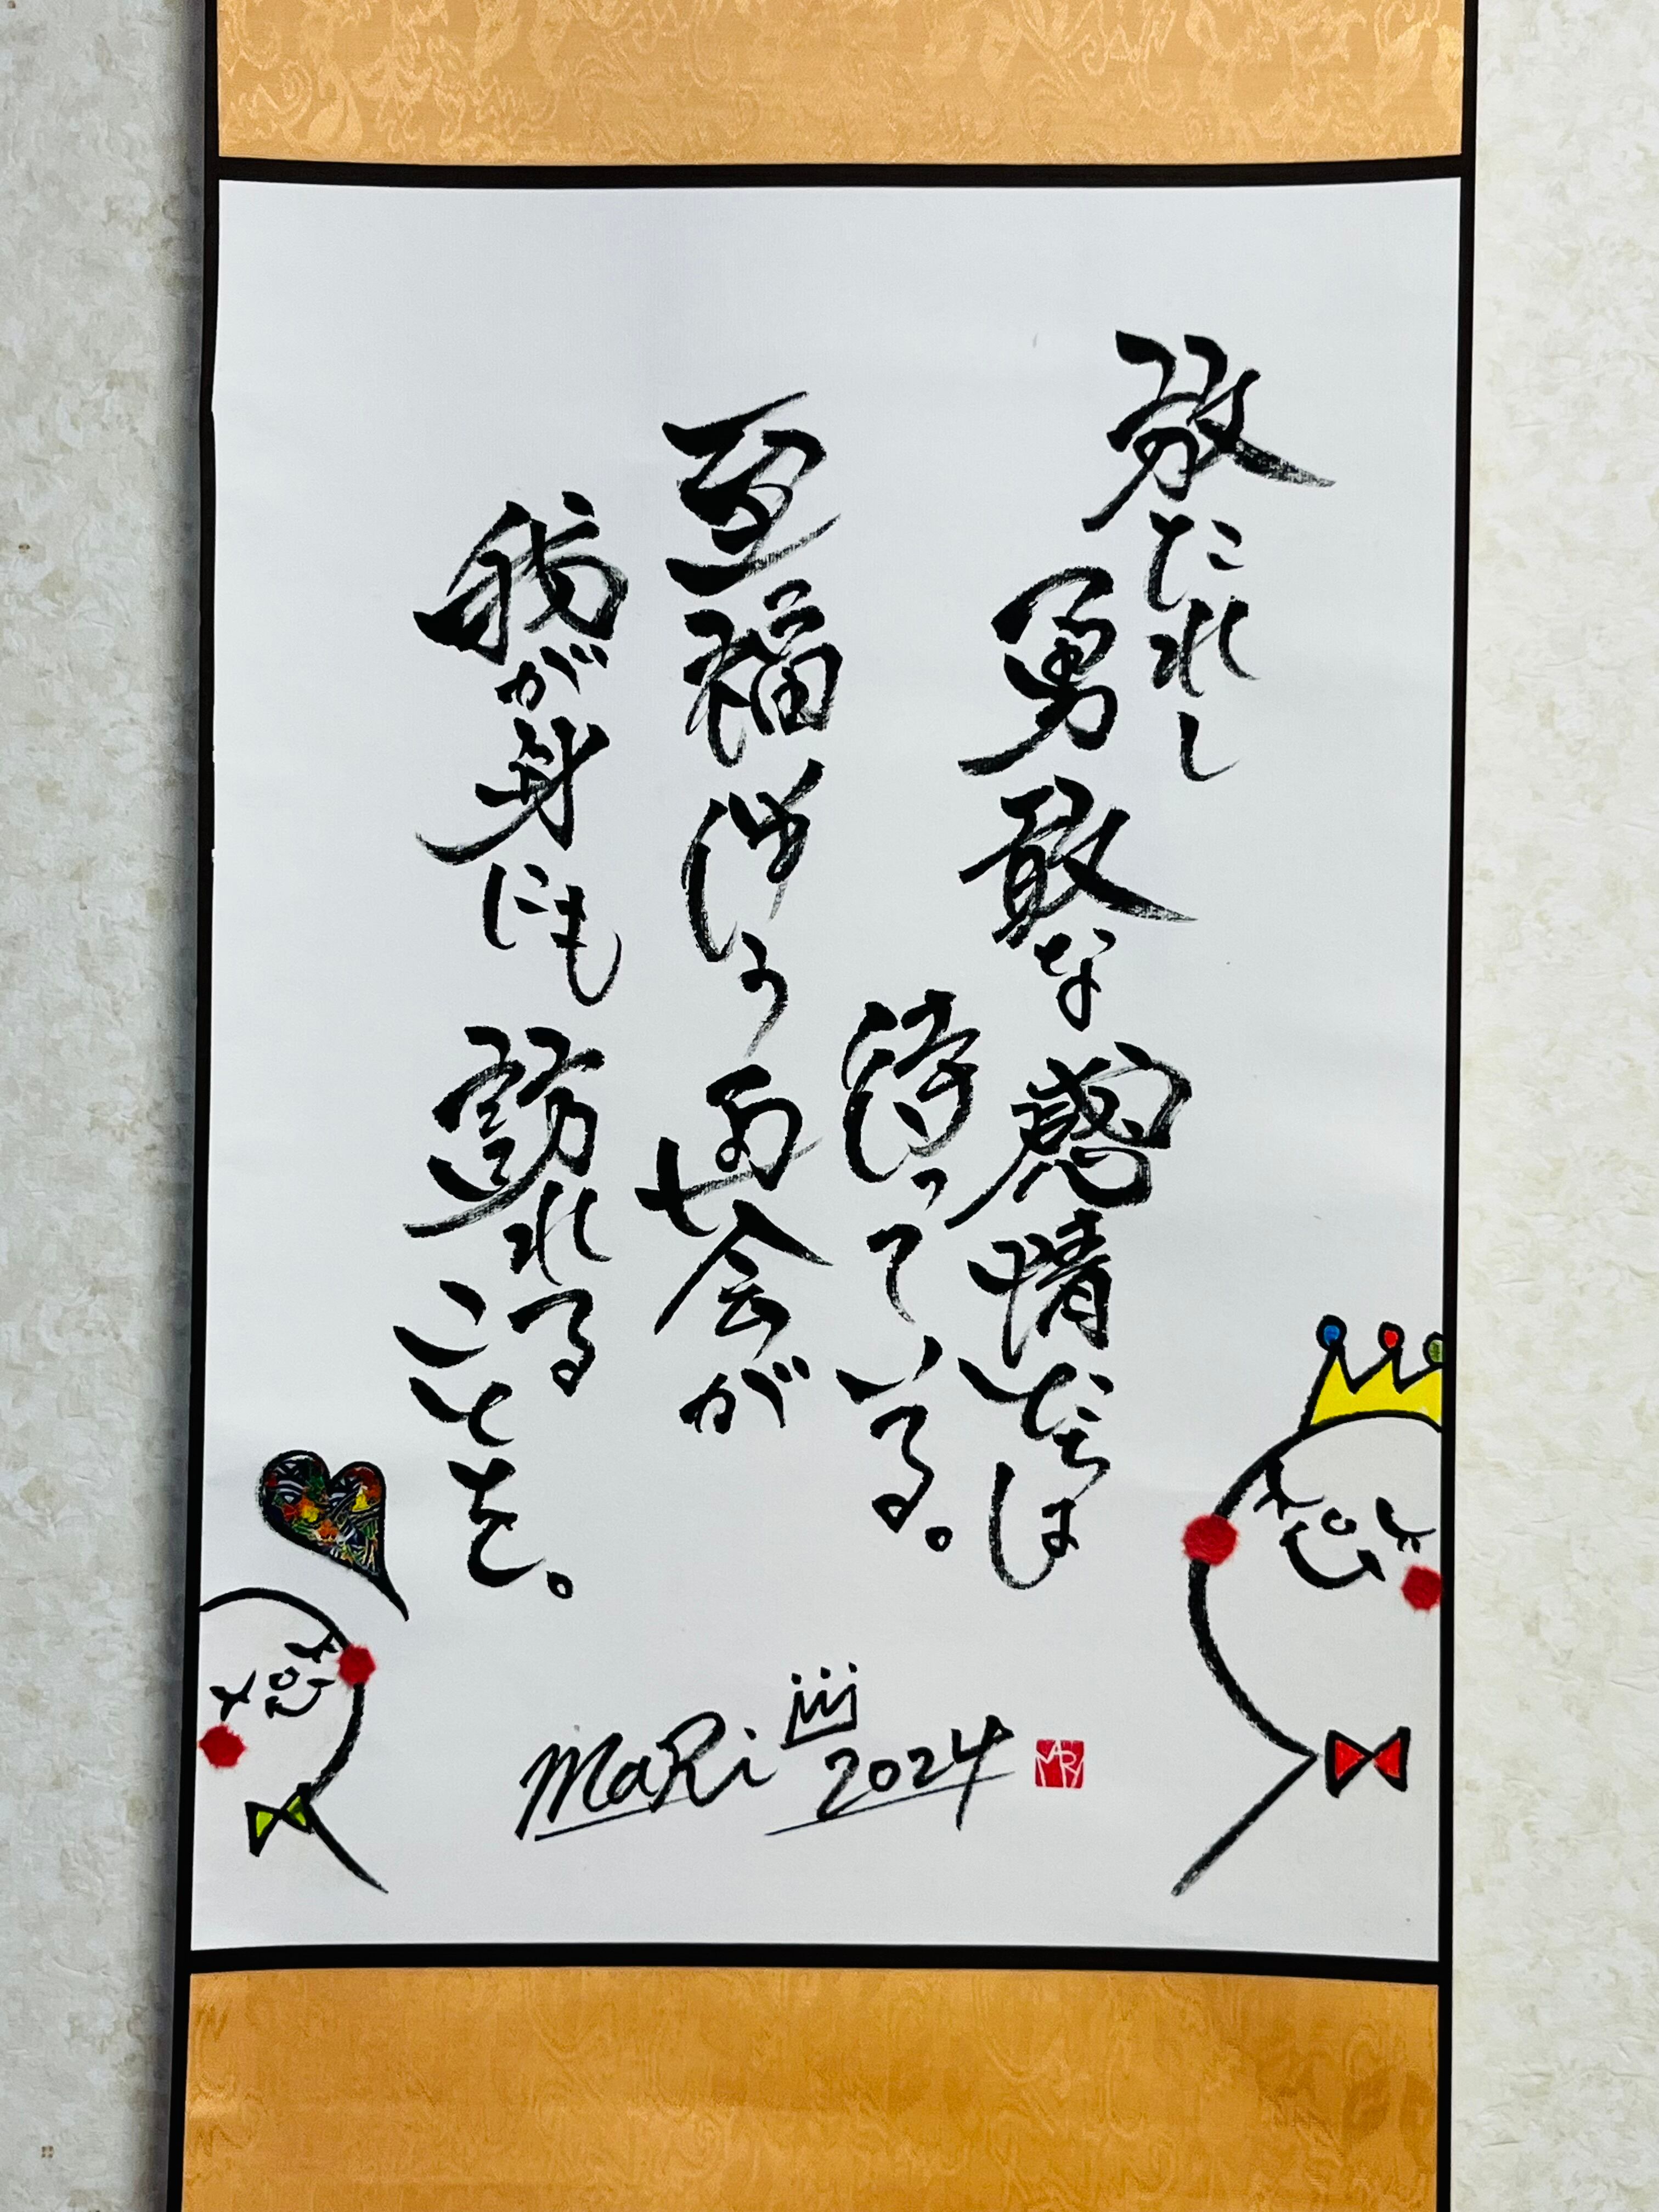 放たれし
勇敢な感情たちは
待っている。
至福伴う再会が
我が身にも訪れる
ことを。
MaRi 2024
MARI